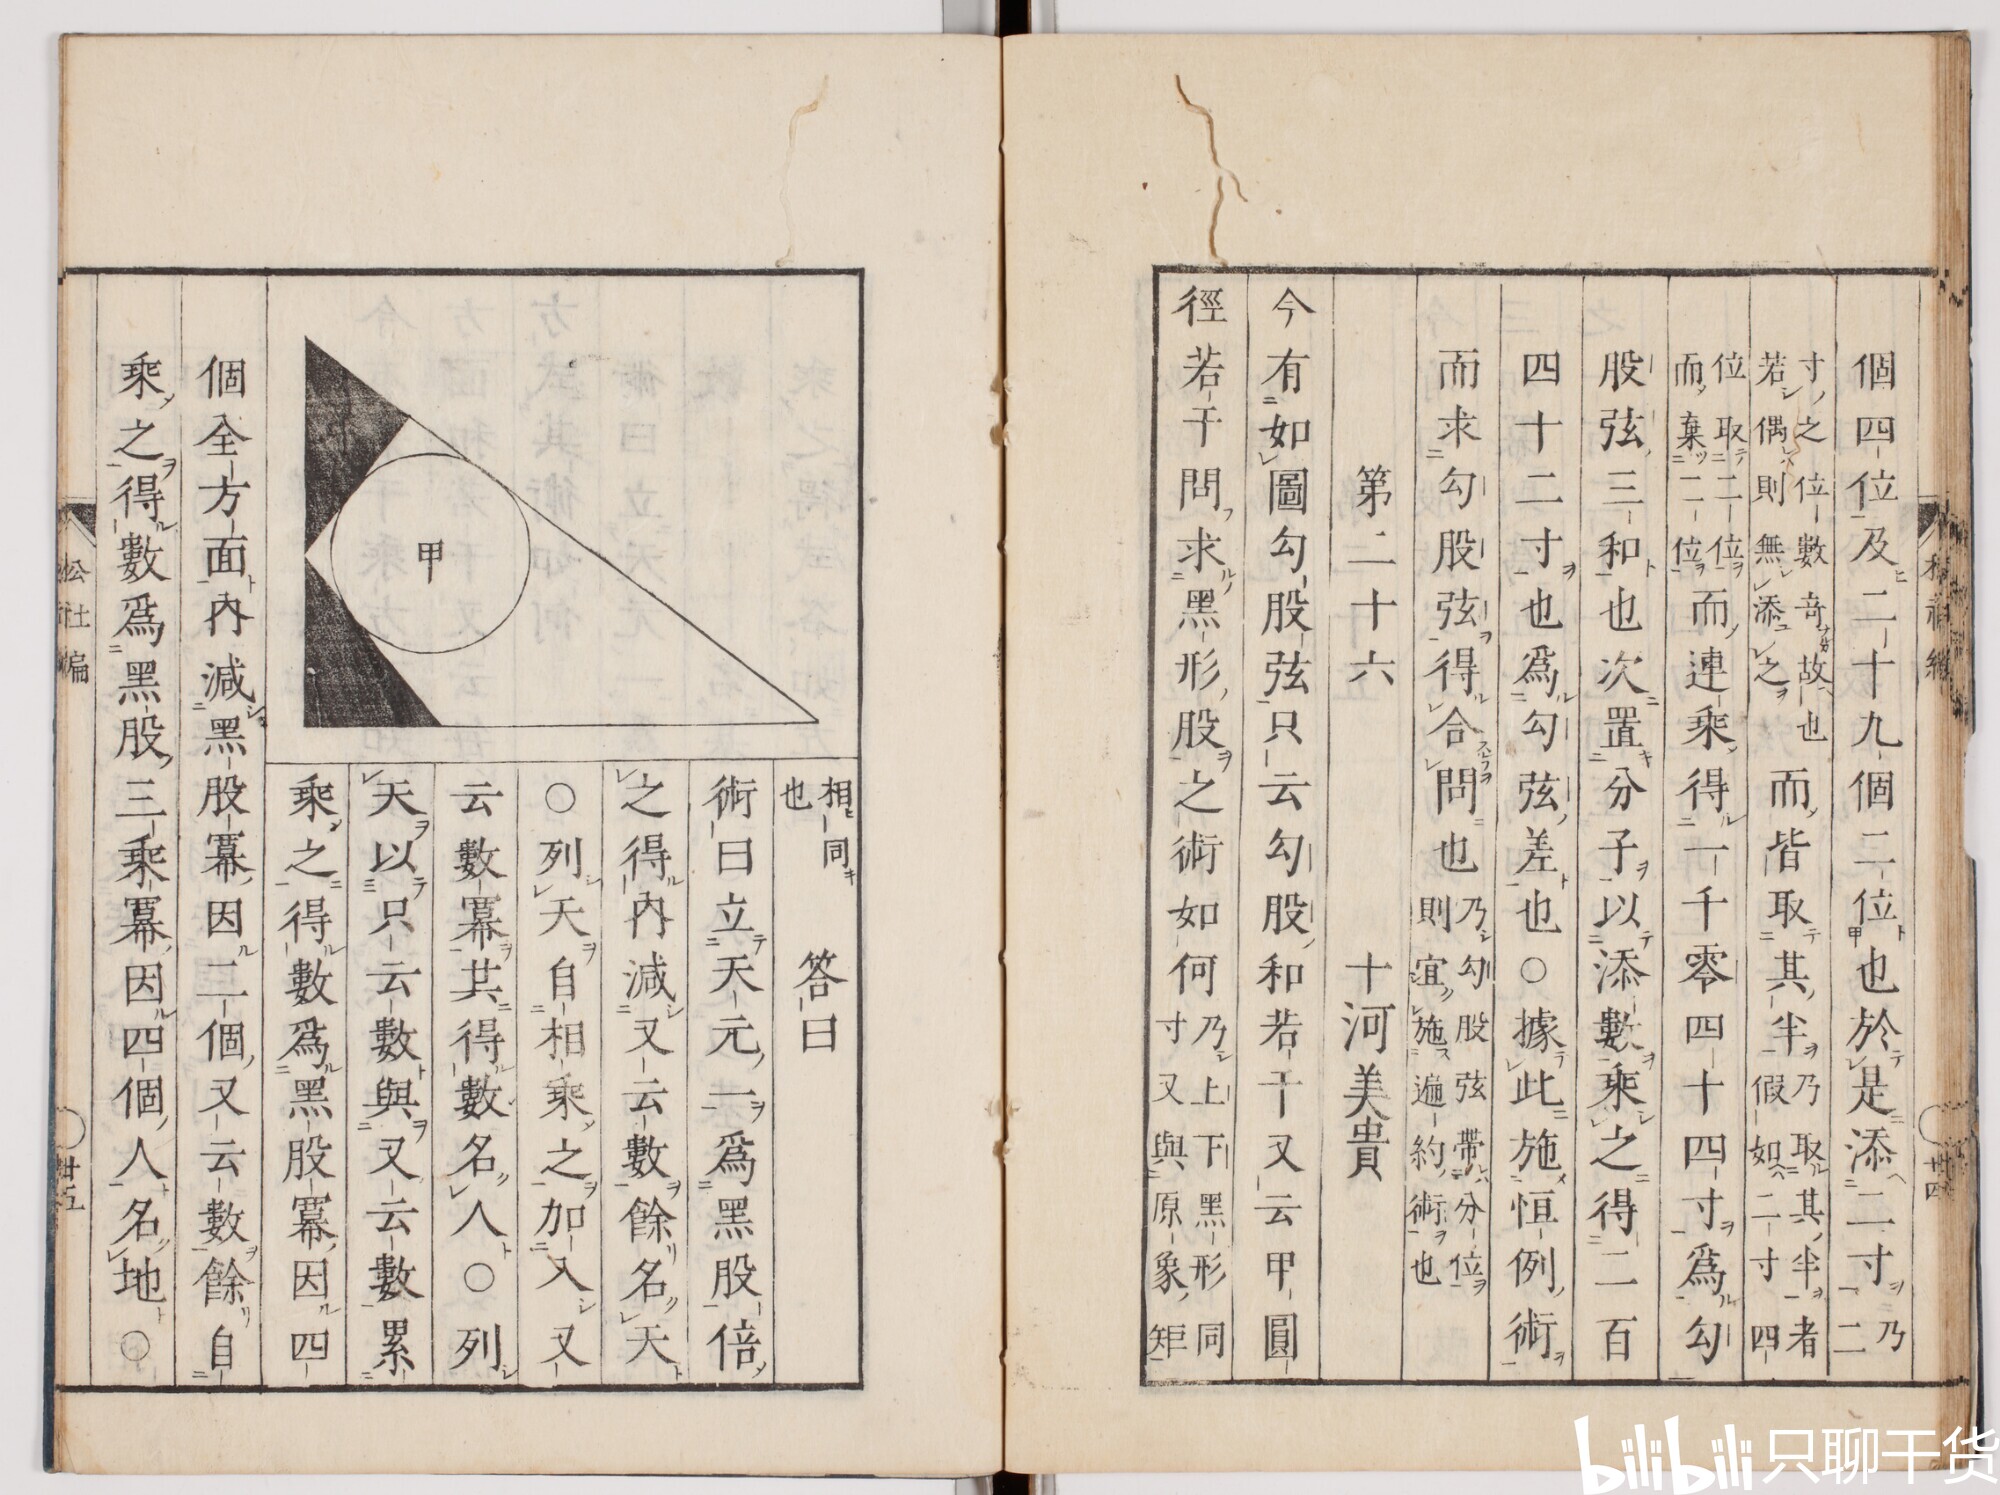 個四位及二十九個二位也於是添二寸乃二
甲
寸之位數奇故也而皆取其半乃取其半者
若偶則無添之假如二寸四
位取二位而連乘得一千零四十四寸爲勾
而棄二位
股弦三和也次置分子以添數乘之得二百
四十二寸也爲勾弦差也○據此施恒例術
而求勾股弦得合問也乃勾股弦帶分位
則宜施遍約術也
第二十六
十河美貴
今有如圖勾股弦只云勾股和若干又云甲圓
徑若干問求黑形股之術如何乃上下黑形同
寸又與原象矩
相同
也
答曰
術曰立天元一爲黑股倍
之得內減又云數餘名天
○列天自相乘之加入又
云數冪共得數名人○列
天以只云數與又云數累
乘之得數爲黑股冪因四
個全方面內減黑股冪因二個又云數餘自
乘之得數爲黑股三乘冪因四個人名地○
甲
松社編
廿五
廿四
bilibili 只聊干货